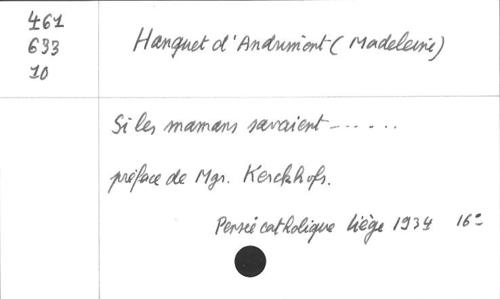 461
633
10
Hanquet d'Andrimont (Madeleine)
Si les mamans savaient ------
préface de Mgr. Kerckhofs.
Pensée catholique Liège 1934 16°